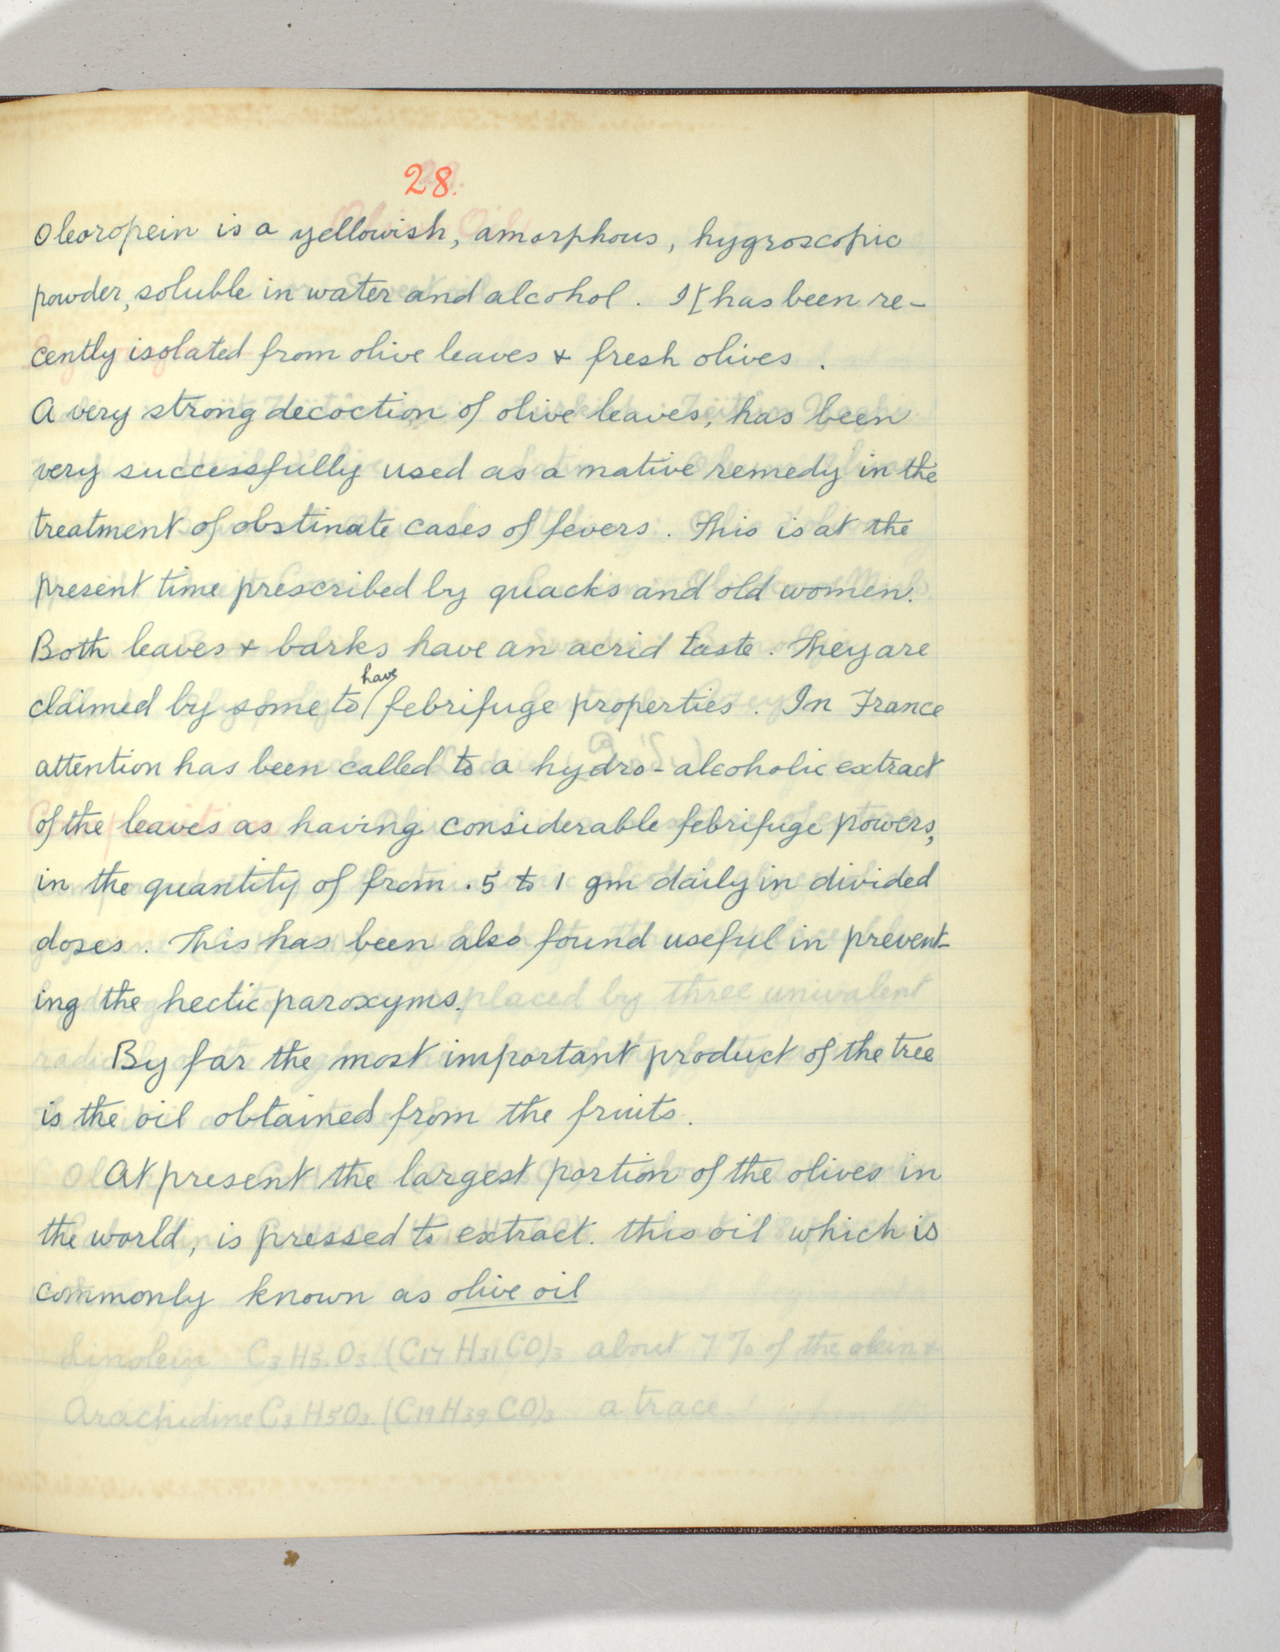 28.
Olearopein is a yellowish, amorphous, hygroscopic
powder, soluble in water and alcohol. It has been re-
cently isolated from olive leaves & fresh olives.
A very strong decoction of olive leaves, has been
very successfully used as a native remedy in the
treatment of obstinate cases of fevers. This is at the
present time prescribed by quacks and old women.
Both leaves & barks have an acrid taste. They are
have
claimed by some to febrifuge properties. In France
attention has been called to a hydro-alcoholic extract
of the leaves as having considerable febrifuge powers,
in the quantity of from .5 to 1 gm daily in divided
doses. This has been also found useful in prevent-
ing the hectic paroxyms. placed by three univalent
By far the most important product of the tree
is the oil obtained from the fruits.
At present the largest portion of the olives in
the world, is pressed to extract. this oil which is
commonly known as olive oil
Linolein C3H5.O3 (C17H31CO)3 about 7% of the olein &
Arachidine C3H5O3 (C19H39CO)3 a trace